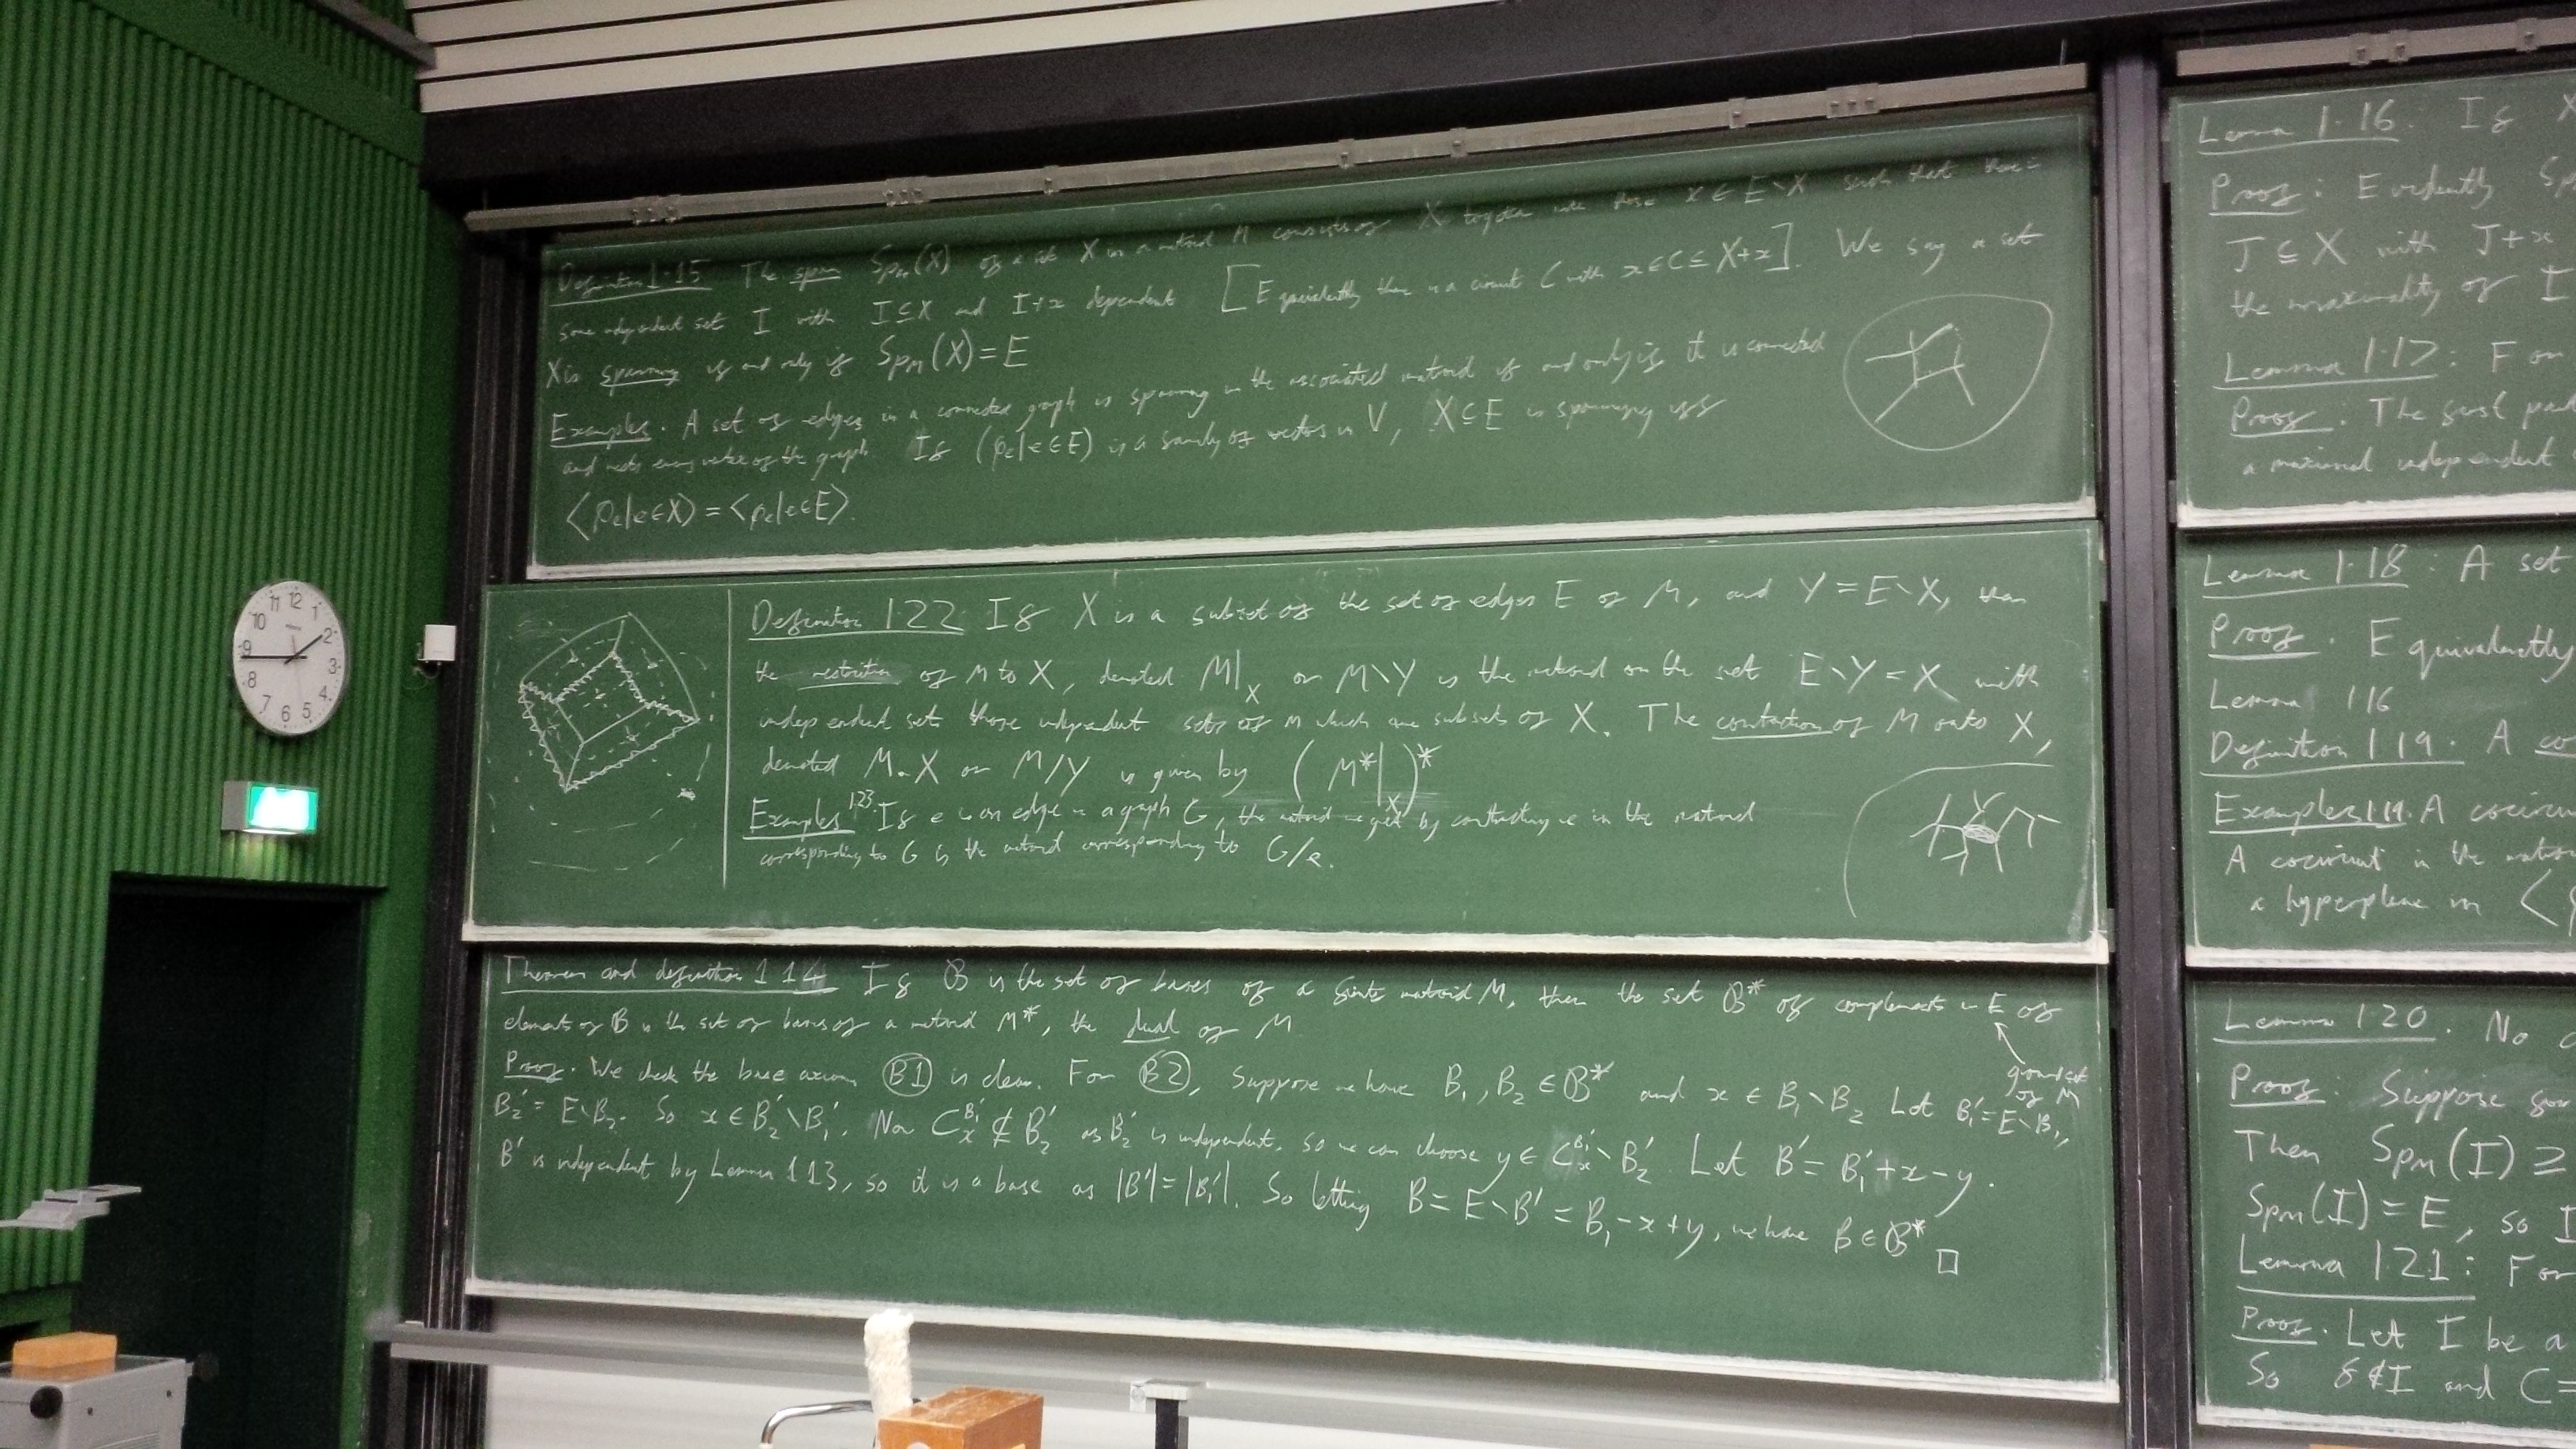 Definition 1.15 The span Sp_M(X) of a set X in a matroid M consists of X together with those x ∈ E∖X such that there is
some independent set I with I ⊆ X and I+x dependent [Equivalently there is a circuit C with x ∈ C ⊆ X+x]. We say a set
X is spanning if and only if Sp_M(X) = E
Examples. A set of edges in a connected graph is spanning in the associated matroid if and only if it is connected
and meets every vertex of the graph. If (p_e|e∈E) is a family of vectors in V, X ⊆ E is spanning iff
⟨p_e|e∈X⟩ = ⟨p_e|e∈E⟩.
Definition 1.22 If X is a subset of the set of edges E of M, and Y = E∖X, then
the restriction of M to X, denoted M|_X or M∖Y is the matroid on the set E∖Y = X with
independent sets those independent sets of M which are subsets of X. The contraction of M onto X,
denoted M.X or M/Y is given by (M*|_X)*
Examples 1.23. If e is an edge in a graph G, the matroid we get by contracting e in the matroid
corresponding to G is the matroid corresponding to G/e.
Theorem and definition 1.14 If 𝓑 is the set of bases of a finite matroid M, then the set 𝓑* of complements in E of
elements of B is the set of bases of a matroid M*, the dual of M
ground set
of M
Proof. We check the base axioms (B1) is clear. For (B2), suppose we have B₁, B₂ ∈ 𝓑* and x ∈ B₁∖B₂ Let B₁' = E∖B₁,
B₂' = E∖B₂. So x ∈ B₂'∖B₁'. Now C_x^{B₁'} ⊄ B₂' as B₂' is independent, so we can choose y ∈ C_x^{B₁'}∖B₂'. Let B' = B₁'+x−y.
B' is independent by Lemma 1.13, so it is a base as |B'| = |B₁'|. So letting B = E∖B' = B₁−x+y, we have B ∈ 𝓑*
□
Lemma 1.16. If X
Proof: Evidently Sp
J ⊆ X with J+x
the maximality of I
Lemma 1.17: For
Proof. The first pa
a maximal independent
Lemma 1.18: A set
Proof. Equivalently
Lemma 1.16
Definition 1.19. A co
Examples 1.19. A cocircu
A cocircuit in the matro
a hyperplane in ⟨
Lemma 1.20. No c
Proof: Suppose
Then Sp_M(I) ⊇
Sp_M(I) = E, so I
Lemma 1.21: For
Proof. Let I be a
So f∉I and C =
12
1
2
3
4
5
6
7
8
9
10
11